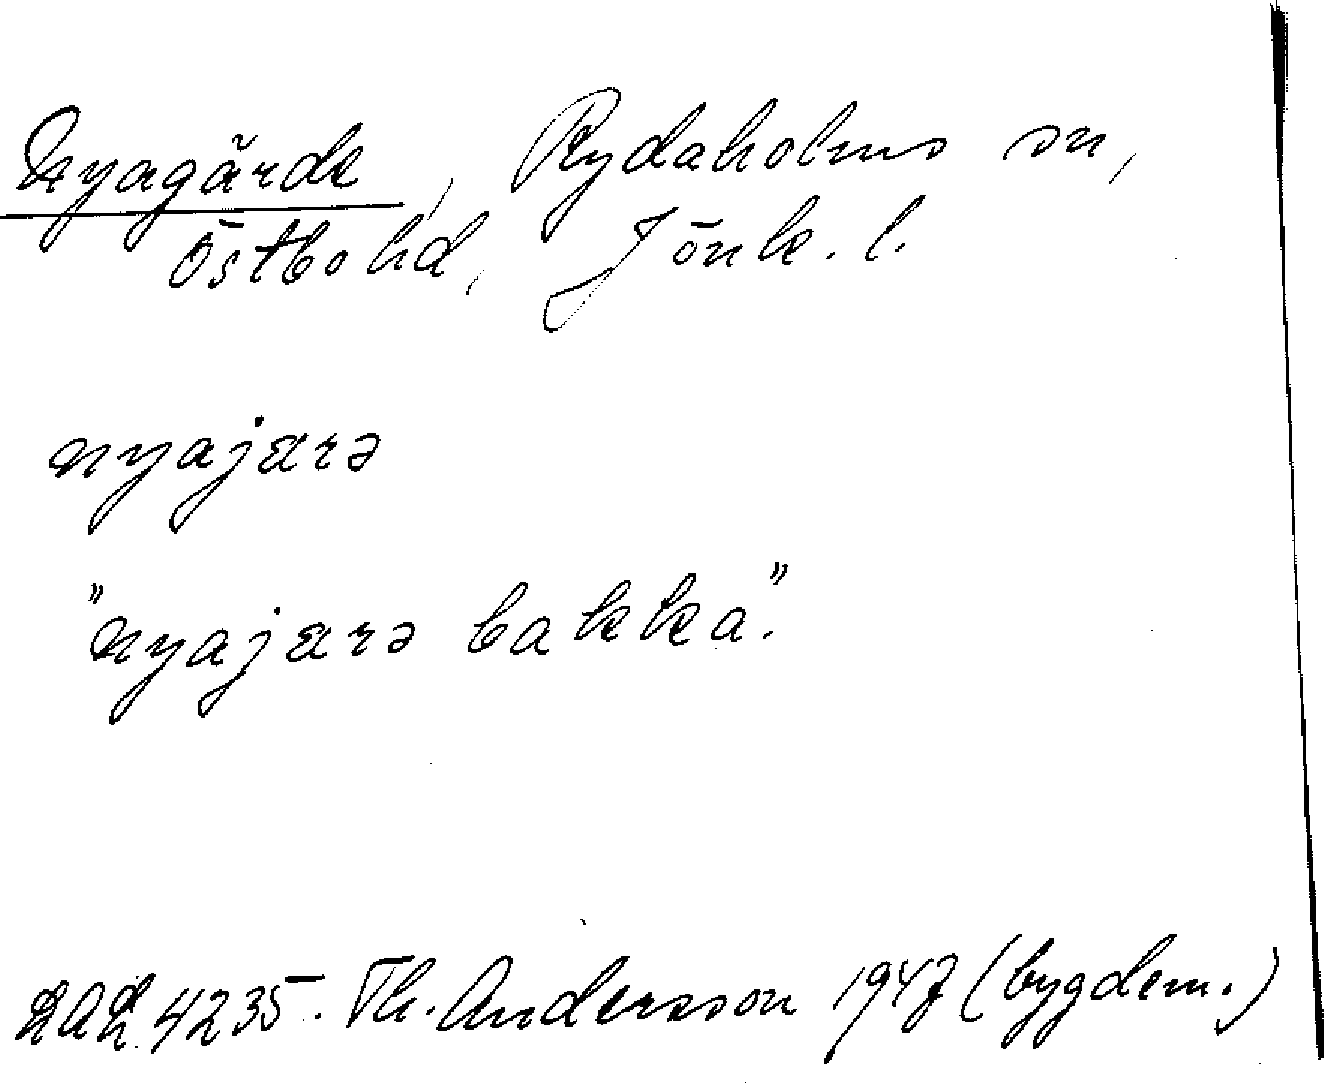 Nyagärde, Rydaholms sn,
Östbo hd, Jönk. l.
nyajærə
"nyajærə bakka".
DAL 4235. Th. Andersson 1947 (bygdem.)